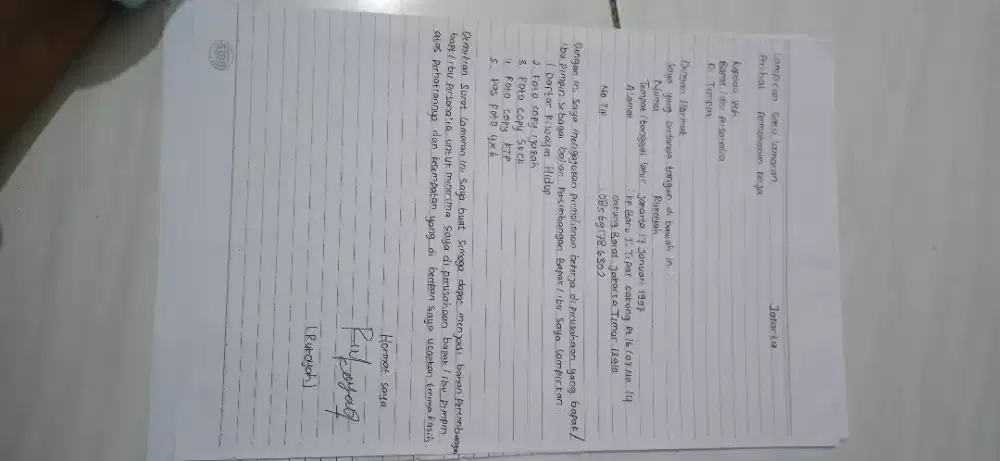 Lampiran Satu lamaran
Jakarta
Perihal Permohonan kerja
Kepada Yth
Bapak / ibu Personalia
Di Tempat
Dengan Hormat
Saya yang bertanda tangan di bawah ini :
Nama : Rukoyah
Tempat / tanggal lahir : Jakarta 17 Januari 1997
Alamat : Kp. Baru Jl. Tipar cakung Rt 16 / 07 No. 14
cakung Barat Jakarta Timur 13910
No Tlp : 085691786302
Dengan ini saya mengajukan permohonan bekerja di perusahaan yang bapak /
ibu pimpin sebagai bahan Pertimbangan Bapak / ibu saya lampirkan
1. Daftar Riwayat Hidup
2. Foto copy ijazah
3. Foto copy SKCK
4. Foto copy KTP
5. Pas foto 4x6
Demikian surat lamaran ini saya buat semoga dapat menjadi bahan Pertimbangan
bapak / ibu personalia untuk menerima saya di perusahaan bapak / ibu pimpin
atas perhatiannya dan kesempatan yang di berikan saya ucapkan terima kasih.
Hormat saya
Rukoyah
(Rukoyah)
SIDU